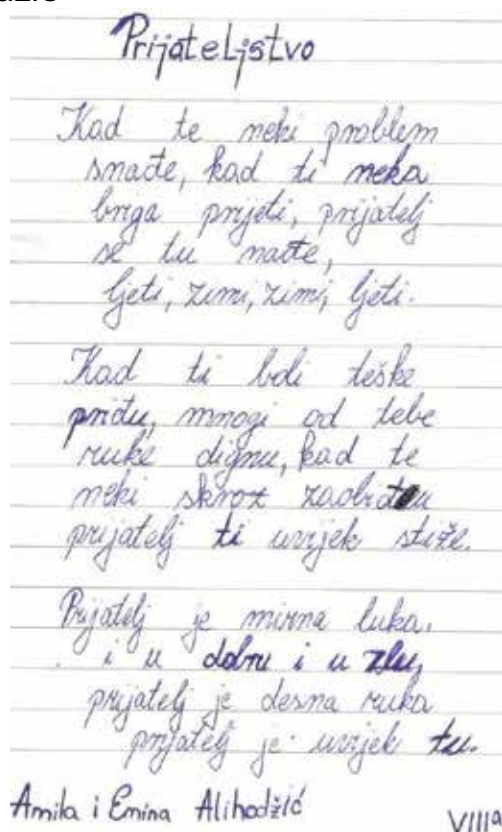 Prijateljstvo
Kad te neki problem
snađe, kad ti neka
briga prijeti, prijatelj
se tu nađe,
ljeti, zimi, zimi, ljeti.
Kad ti boli teške
priđu, mnogi od tebe
ruke dignu, kad te
neki skroz zaobiđu
prijatelj ti uvijek stiže.
Prijatelj je mirna luka,
i u dobru i u zlu,
prijatelj je desna ruka
prijatelj je uvijek tu.
Amila i Emina Alihodžić
VIIIa